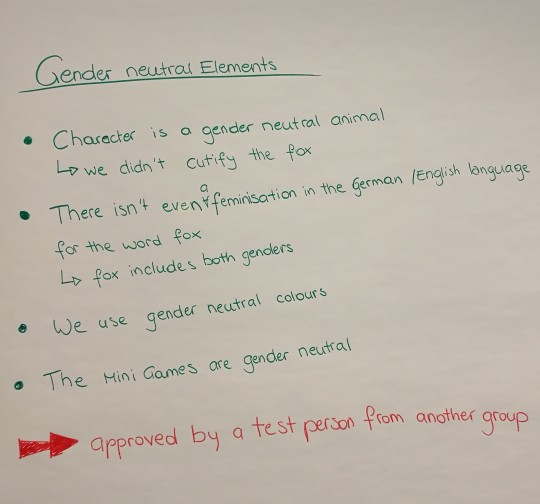 Gender neutral Elements
• Character is a gender neutral animal
↳ we didn't cutify the fox
• There isn't even a feminisation in the German / English language
for the word fox
↳ fox includes both genders
• We use gender neutral colours
• The Mini Games are gender neutral
approved by a test person from another group